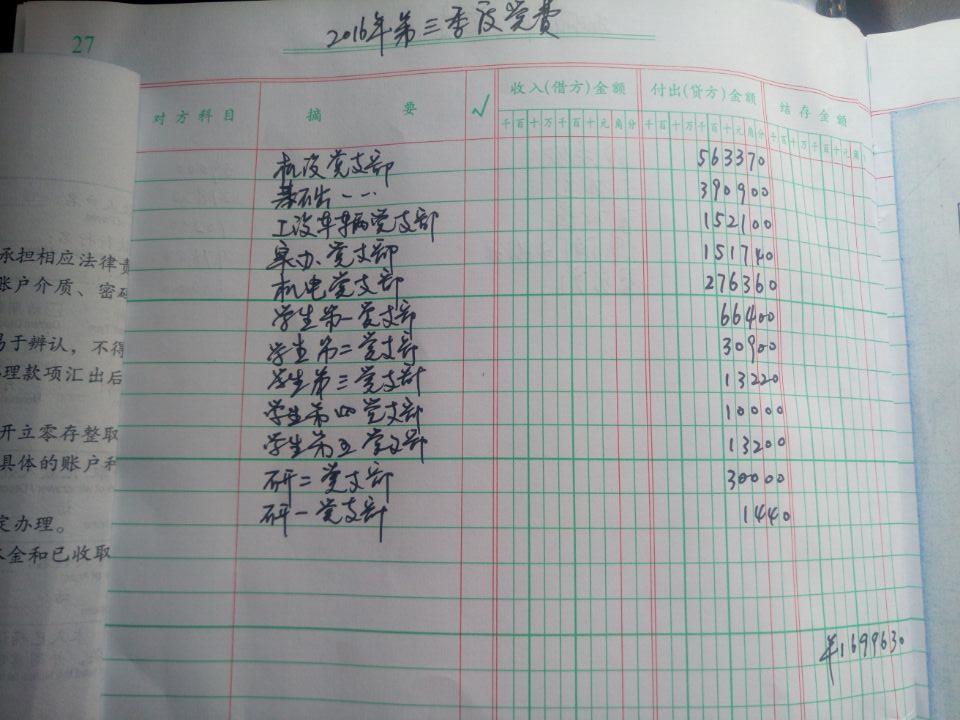 27
2016年第三季度党费
对方科目 摘要 √ 收入(借方)金额 付出(贷方)金额 结存金额
千百十万千百十元角分 千百十万千百十元角分 千百十万千百十元角
机设党支部 563370
基础 390900
工设车辆党支部 152100
党支部 151740
机电党支部 276360
学生第一党支部 66400
学生第二党支部 30900
学生第三党支部 13220
学生第四党支部 10000
学生第五党支部 13200
研二党支部 30000
研一党支部 1440
¥1699630
承担相应法律责
账户介质、密码
易于辨认,不得
理款项汇出后
开立零存整取
具体的账户和
定办理。
金和已收取